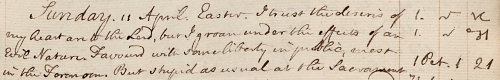 Sunday. 11 April. Easter. I trust the desires of 1. √
my heart are to the Lord, but I groan under the effects of an 1. √ 21
Evil Nature. Favour'd with some liberty in public, most 1 Cot. 1 21
in the Forenoon. But stupid as usual at the Sacrament